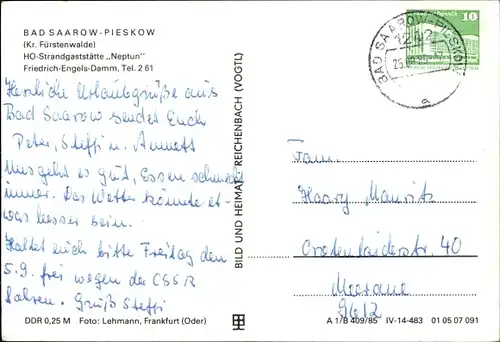 BAD SAAROW-PIESKOW
(Kr. Fürstenwalde)
HO-Strandgaststätte „Neptun"
Friedrich-Engels-Damm, Tel. 2 61
Herzliche Urlaubsgrüße aus
Bad Saarow sendet Euch
Peter, Steffi u. Annett
Uns geht es gut, Essen schmeckt
immer. Das Wetter könnte et-
was besser sein.
Haltet euch bitte Freitag den
5.9. frei wegen der CSSR
Fahren. Gruß Steffi
DDR 0,25 M Foto: Lehmann, Frankfurt (Oder)
BILD UND HEIMAT REICHENBACH (VOGTL)
BAD SAAROW-PIESKOW
1242
a
10
Fam.
Haary Mauritz
40
Meerane
9612
A 1/B 409/85 IV-14-483 01 05 07 091